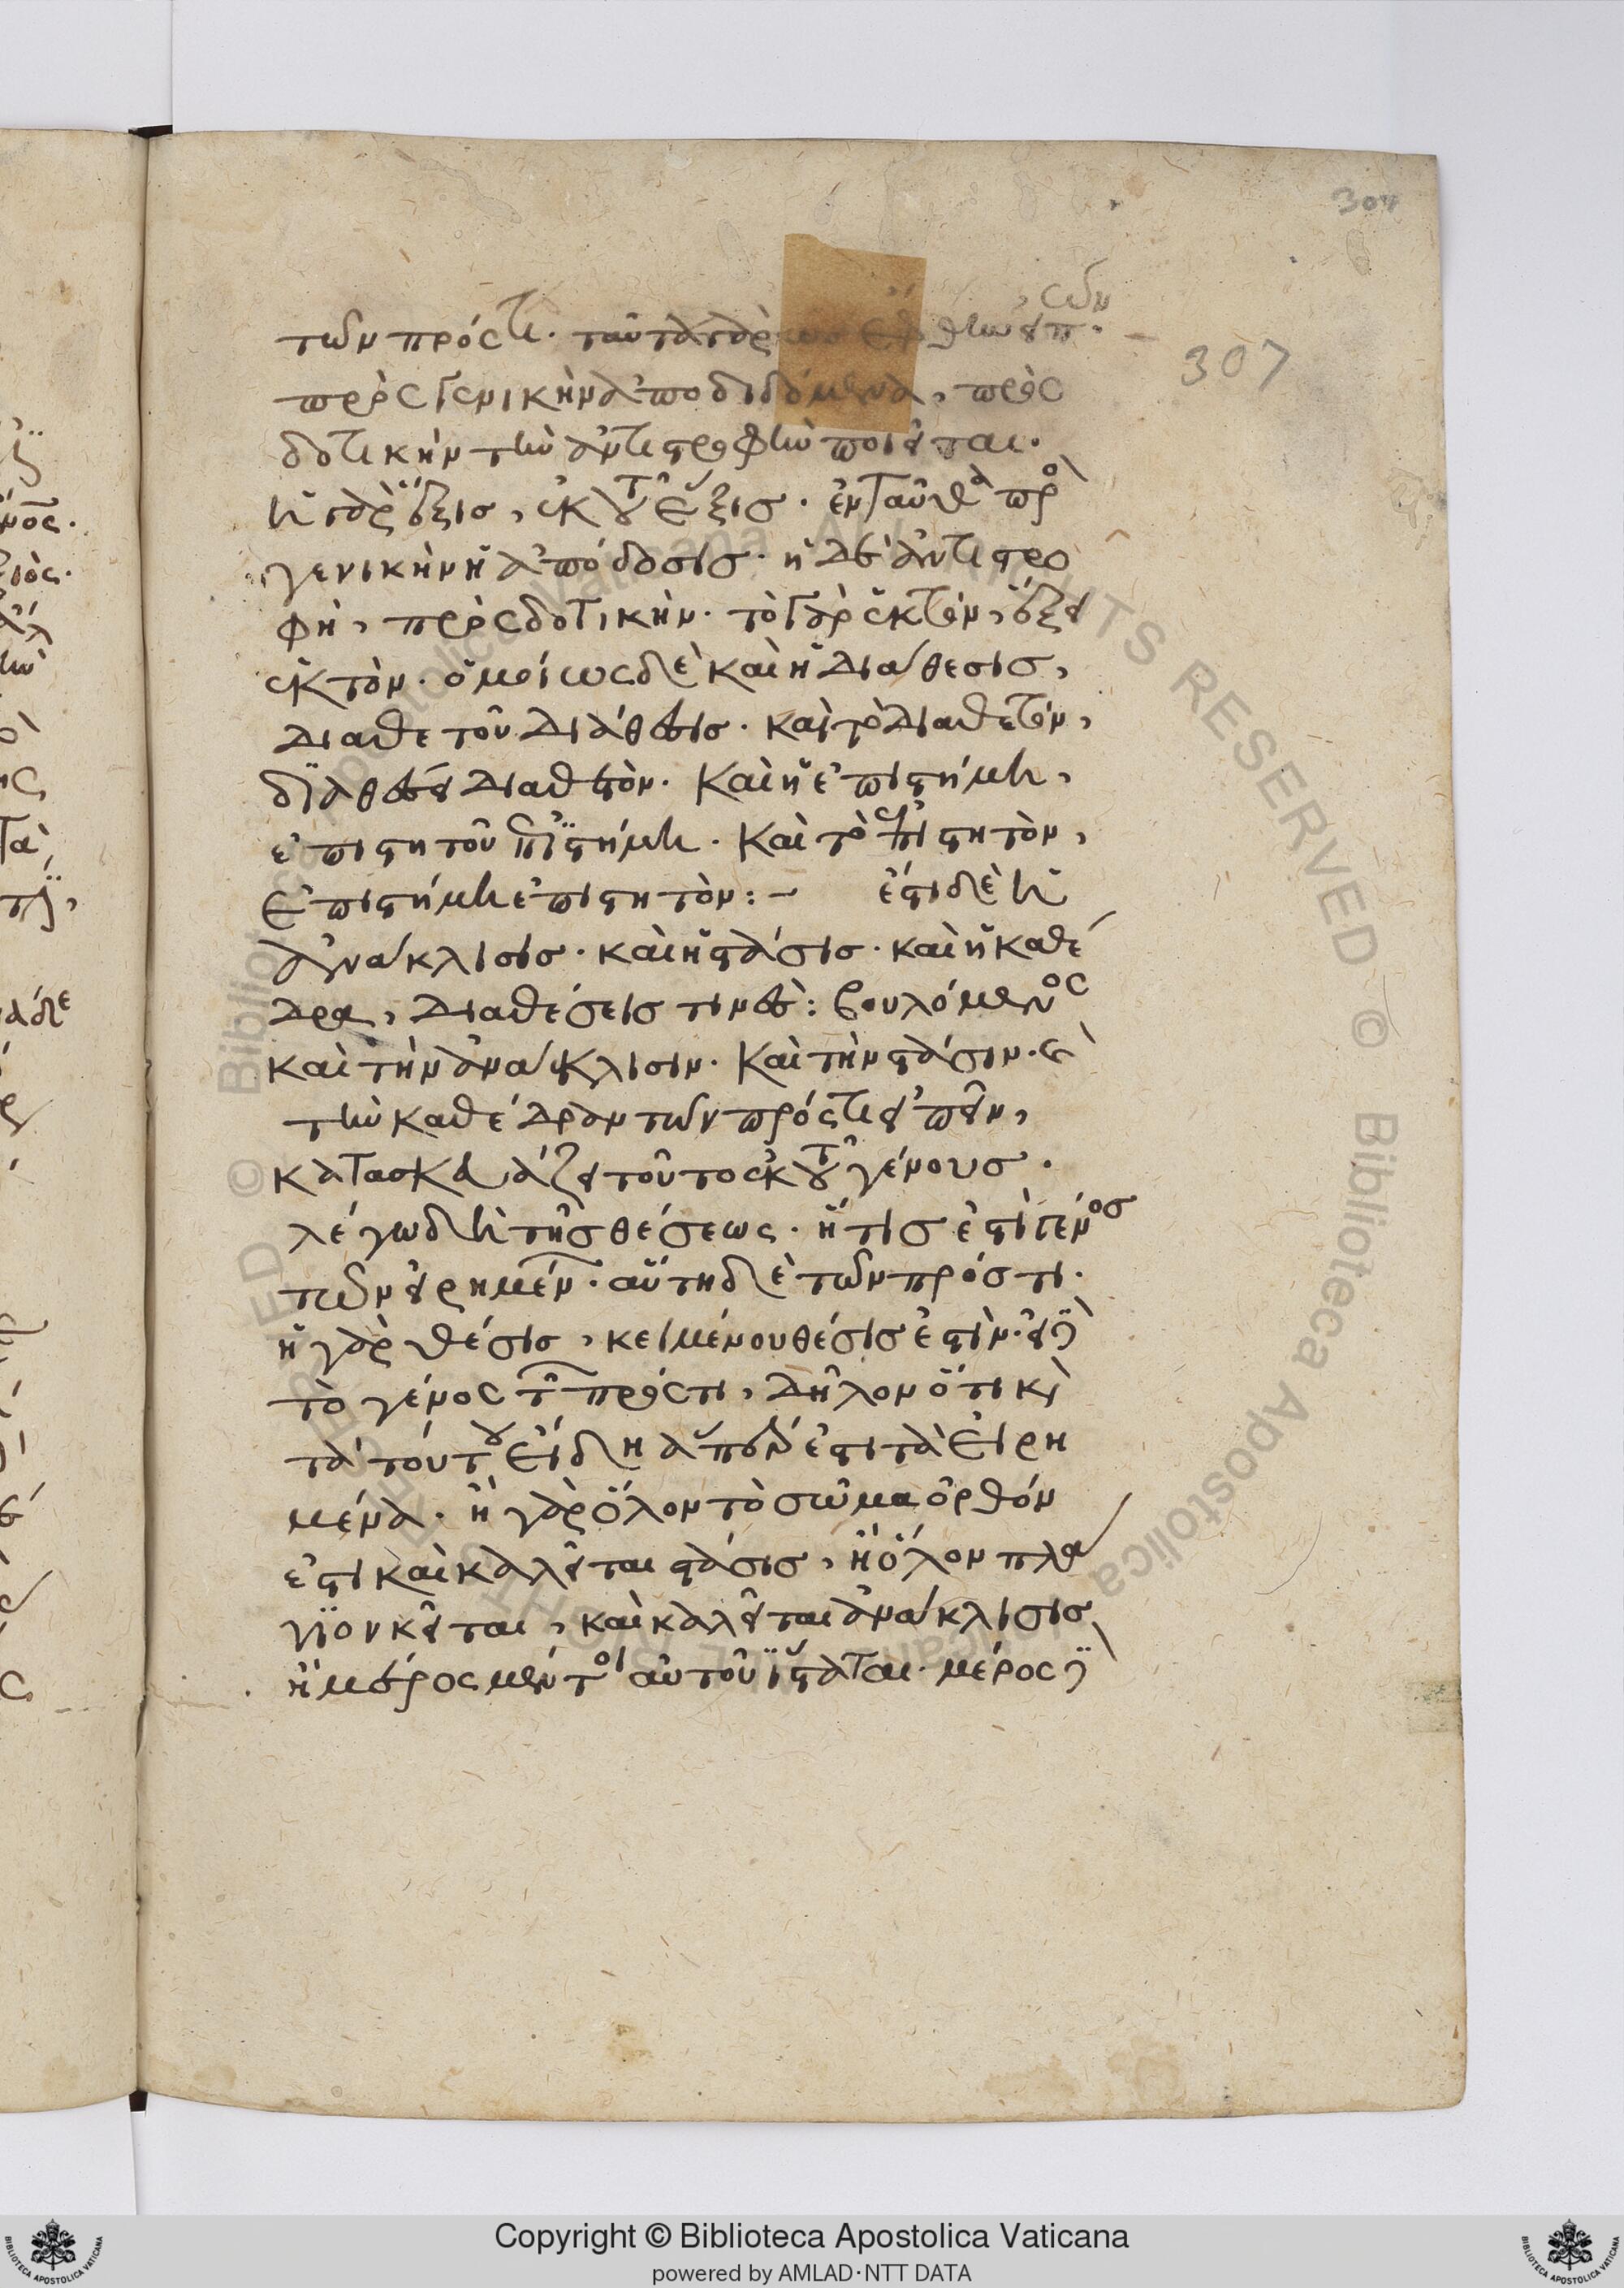 307
των πρός τι· ταῦτα γὰρ
307
πρὸς γενικὴν ἀποδιδόμενα, πρὸς
δοτικὴν τὴν ἀντιστροφὴν ποιεῖται·
ἡ γὰρ ἕξις, ἑκτοῦ ἕξις· ἐνταῦθα πρὸ
γενικὴν ἡ ἀπόδοσις· ἡ δὲ ἀντιστρο
φὴ, πρὸς δοτικήν· τὸ γὰρ ἑκτὸν, ἕξει
ἑκτόν· ὁμοίως δὲ καὶ ἡ διάθεσις,
διαθετοῦ διάθεσις· καὶ τὸ διαθετὸν,
διαθέσει διαθετόν· καὶ ἡ ἐπιστήμη,
ἐπιστητοῦ ἐπιστήμη· καὶ τὸ ἐπιστητὸν,
ἐπιστήμη ἐπιστητόν:– ἔστι δὲ ἡ
ἀνάκλισις· καὶ ἡ στάσις· καὶ ἡ καθέ
δρα, διαθέσεις τινές: βουλόμενος
καὶ τὴν ἀνάκλισιν· καὶ τὴν στάσιν· καὶ
τὴν καθέδραν τῶν πρός τι εἰπεῖν,
κατασκευάζει τοῦτο ἐκ τοῦ γένους·
λέγω δὴ τῆς θέσεως· ἥτις ἐστὶ γένος
τῶν εἰρημένων· αὕτη δὲ τῶν πρός τι·
ἡ γὰρ θέσις, κειμένου θέσις ἐστίν· εἰ δὲ
τὸ γένος τῶν πρός τι, δῆλον ὅτι καὶ
τὰ τούτου εἴδη ἅπερ ἐστὶ τὰ εἰρη
μένα· ἢ γὰρ ὅλον τὸ σῶμα ὀρθόν
ἐστι καὶ καλεῖται στάσις, ἢ ὅλον πλά
γιον κεῖται, καὶ καλεῖται ἀνάκλισις
ἢ μέρος μέντοι αὐτοῦ ἵσταται· μέρος δὲ
Copyright © Biblioteca Apostolica Vaticana
powered by AMLAD·NTT DATA